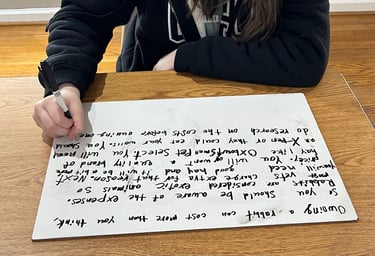 Owning a rabbit can cost more than you think,
so you should be aware of the expenses.
Rabbits are considered exotic animals so
vets charge extra for that reason. Next
will need good hay and it will be a bit more
pricey. You will want a quality brand of
like Oxbow Small Pet Select. You will need
an X-Pen or they could eat your walls. You should
do research on the costs before owning one.